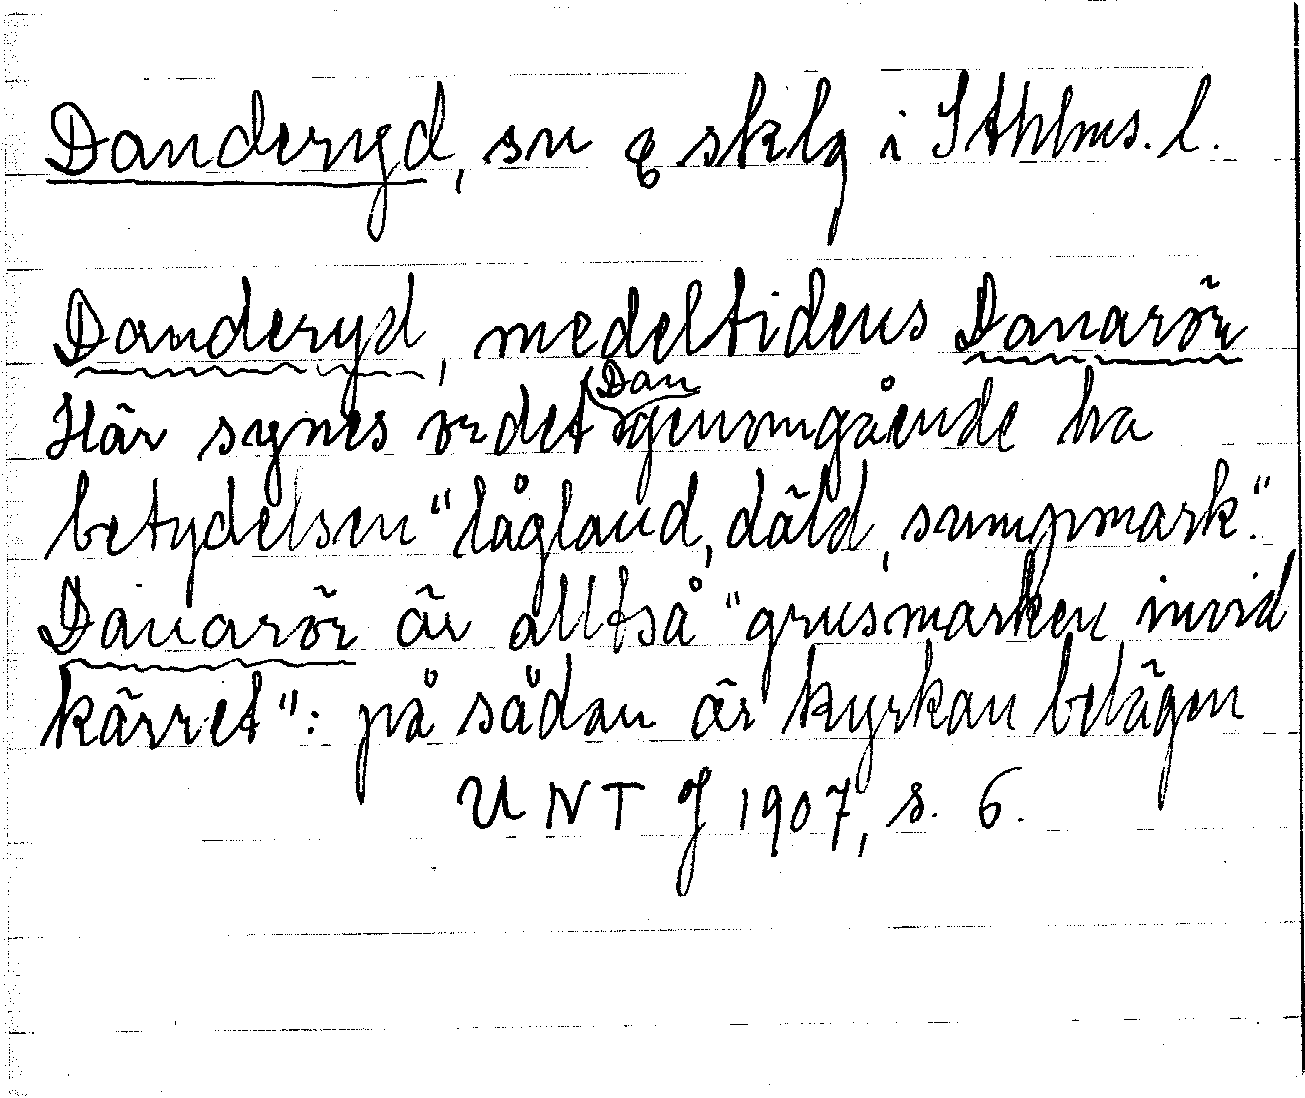 Danderyd, sn & sklg i Sthlms. l.
Danderyd, medeltidens Danarör
Här synes ordet Dan genomgående ha
betydelsen "lågland, däld, sumpmark".
Danarör är alltså "grusmarken invid
kärret": på sådan är kyrkan belägen
UNT J 1907, s. 6.